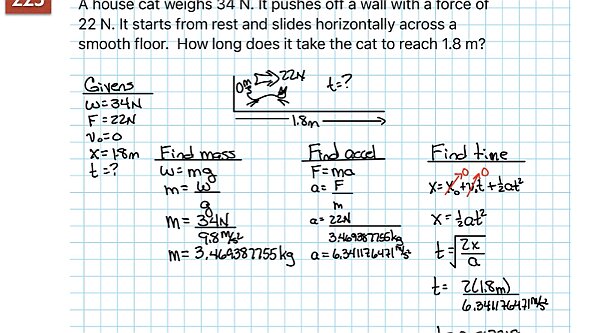 225
A house cat weighs 34 N. It pushes off a wall with a force of
22 N. It starts from rest and slides horizontally across a
smooth floor. How long does it take the cat to reach 1.8 m?
Givens
W=34N
F=22N
V₀=0
X=1.8m
t=?
0m 22N t=?
1.8m
Find mass
W=mg
m= W
g
m= 34N
9.8 m/s²
m= 3.469387755kg
Find accel
F=ma
a= F
m
a= 22N
3.469387755kg
a=6.341176471 m/s²
Find time
0 0
X=X₀+V₀t+½at²
X=½at²
t=√2x
a
t= 2(1.8m)
6.341176471 m/s²